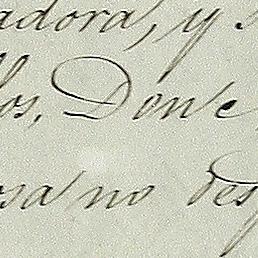 adora, y
los, Don e
osa no des